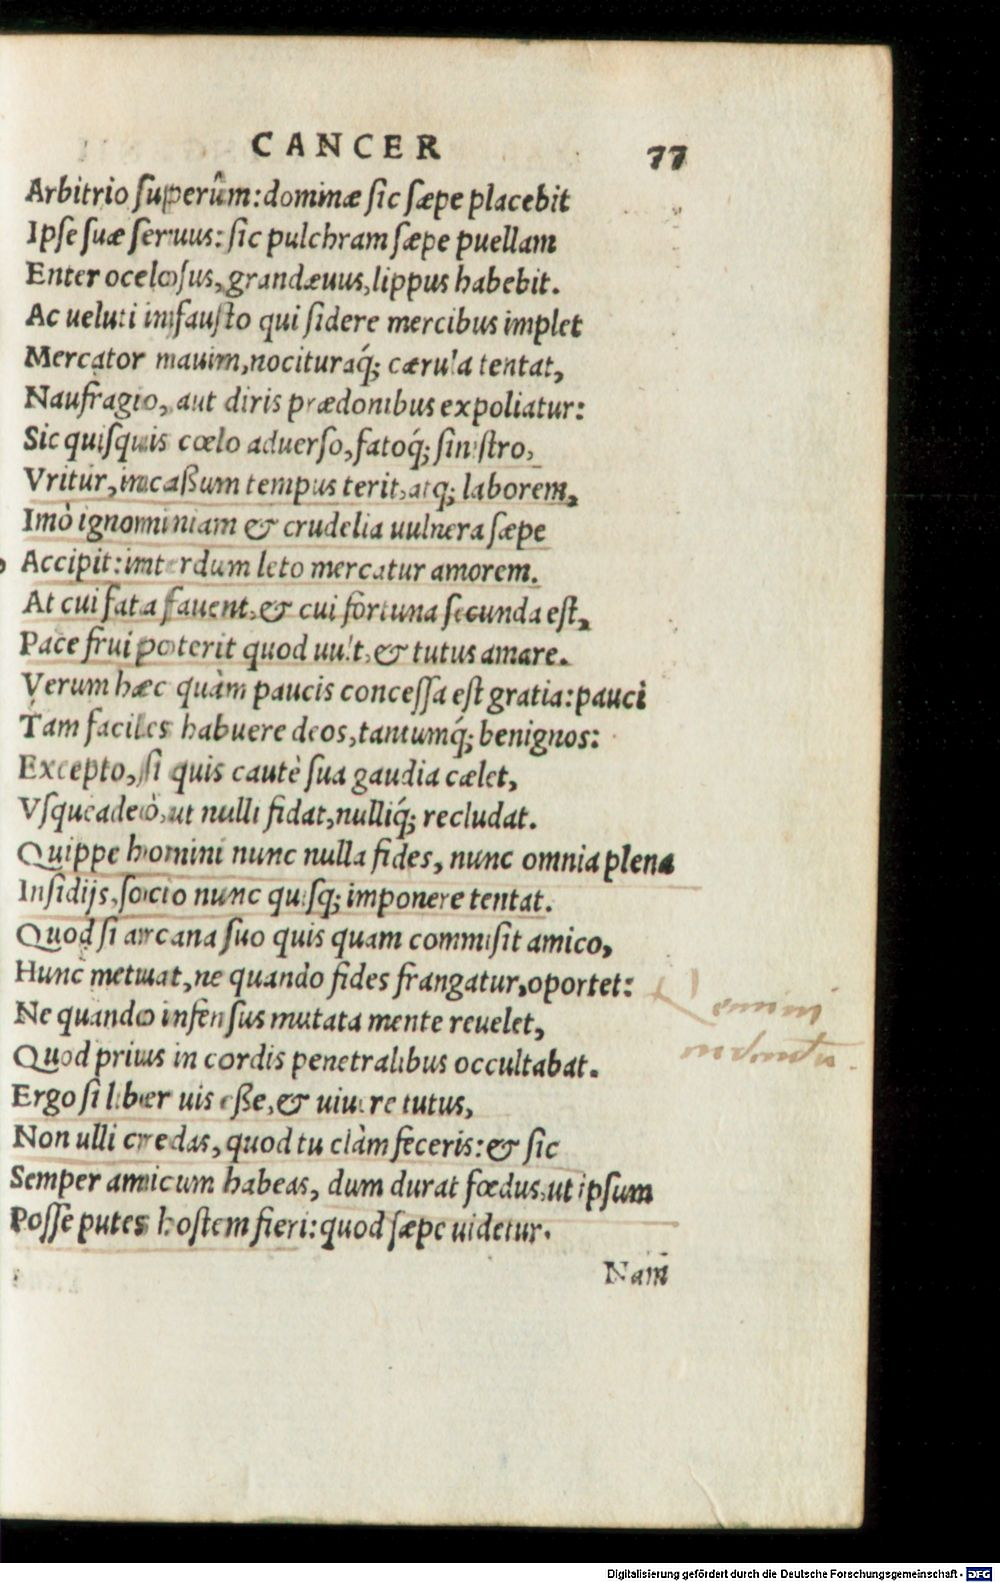 CANCER 77
Arbitrio superûm: dominæ sic sæpe placebit
Ipse suæ seruus: sic pulchram sæpe puellam
Enterocelosus, grandæuus, lippus habebit.
Ac ueluti infausto qui sidere mercibus implet
Mercator nauim, nocituraq́; cærula tentat,
Naufragio, aut diris prædonibus expoliatur:
Sic quisquis cœlo aduerso, fatoq́; sinistro,
Vritur, incaßum tempus terit, atq; laborem,
Imò ignominiam & crudelia uulnera sæpe
Accipit: interdum leto mercatur amorem.
At cui fata fauent, & cui fortuna secunda est,
Pace frui poterit quod uult, & tutus amare.
Verum hæc quàm paucis concessa est gratia: pauci
Tam faciles habuere deos, tantumq́; benignos:
Excepto, si quis cautè sua gaudia cælet,
Vsqueadeò, ut nulli fidat, nulliq́; recludat.
Quippe homini nunc nulla fides, nunc omnia plena
Insidijs, socio nunc quisq; imponere tentat.
Quod si arcana suo quis quam commisit amico,
Hunc metuat, ne quando fides frangatur, oportet:
Ne quando infensus mutata mente reuelet,
Quod prius in cordis penetralibus occultabat.
Ergo si liber uis eße, & uiuere tutus,
Non ulli credas, quod tu clàm feceris: & sic
Semper amicum habeas, dum durat fœdus, ut ipsum
Posse putes hostem fieri: quod sæpe uidetur.
Nam
Digitalisierung gefördert durch die Deutsche Forschungsgemeinschaft - DFG